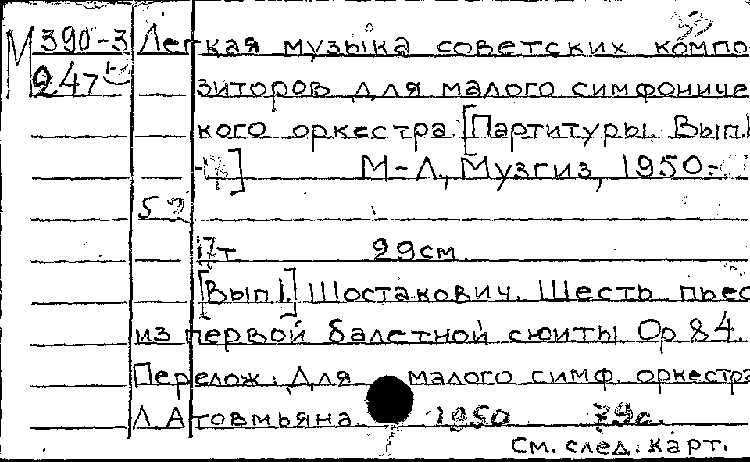 М 390-3 Легкая музыка советских компо
247 зиторов для малого симфониче
кого оркестра. [Партитуры. Вып.1
] М-Л, Музгиз, 1950-
52
17т 29см
[Вып.1.] Шостакович. Шесть пьес
из первой балетной сюиты Ор 84.
Перелож. для малого симф. оркестра
Л. Атовмьяна. 1950 79с.
См. след. карт.